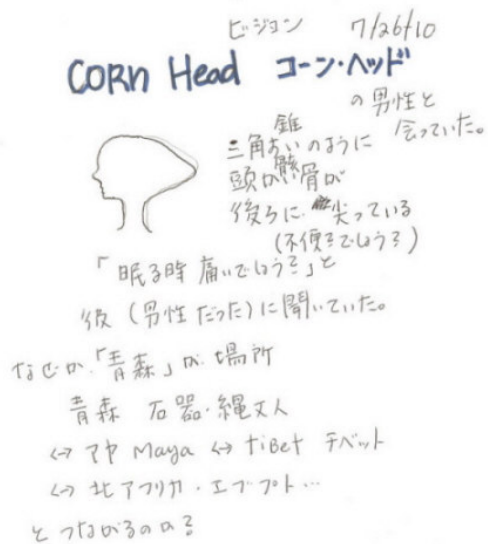 ビジョン 7/26/10
CORN Head コーン・ヘッド
の男性と
会っていた。
錐
三角すいのように
頭がい骨が
後ろに 尖っている
(不便そでしょう?)
「眠る時 痛いでしょう?」と
彼(男性だった)に聞いていた。
なぜか、「青森」が場所
青森 石器・縄文人
↔ マヤ Maya ↔ tiBet チベット
↔ 北アフリカ・エジプト…
とつながるのか?